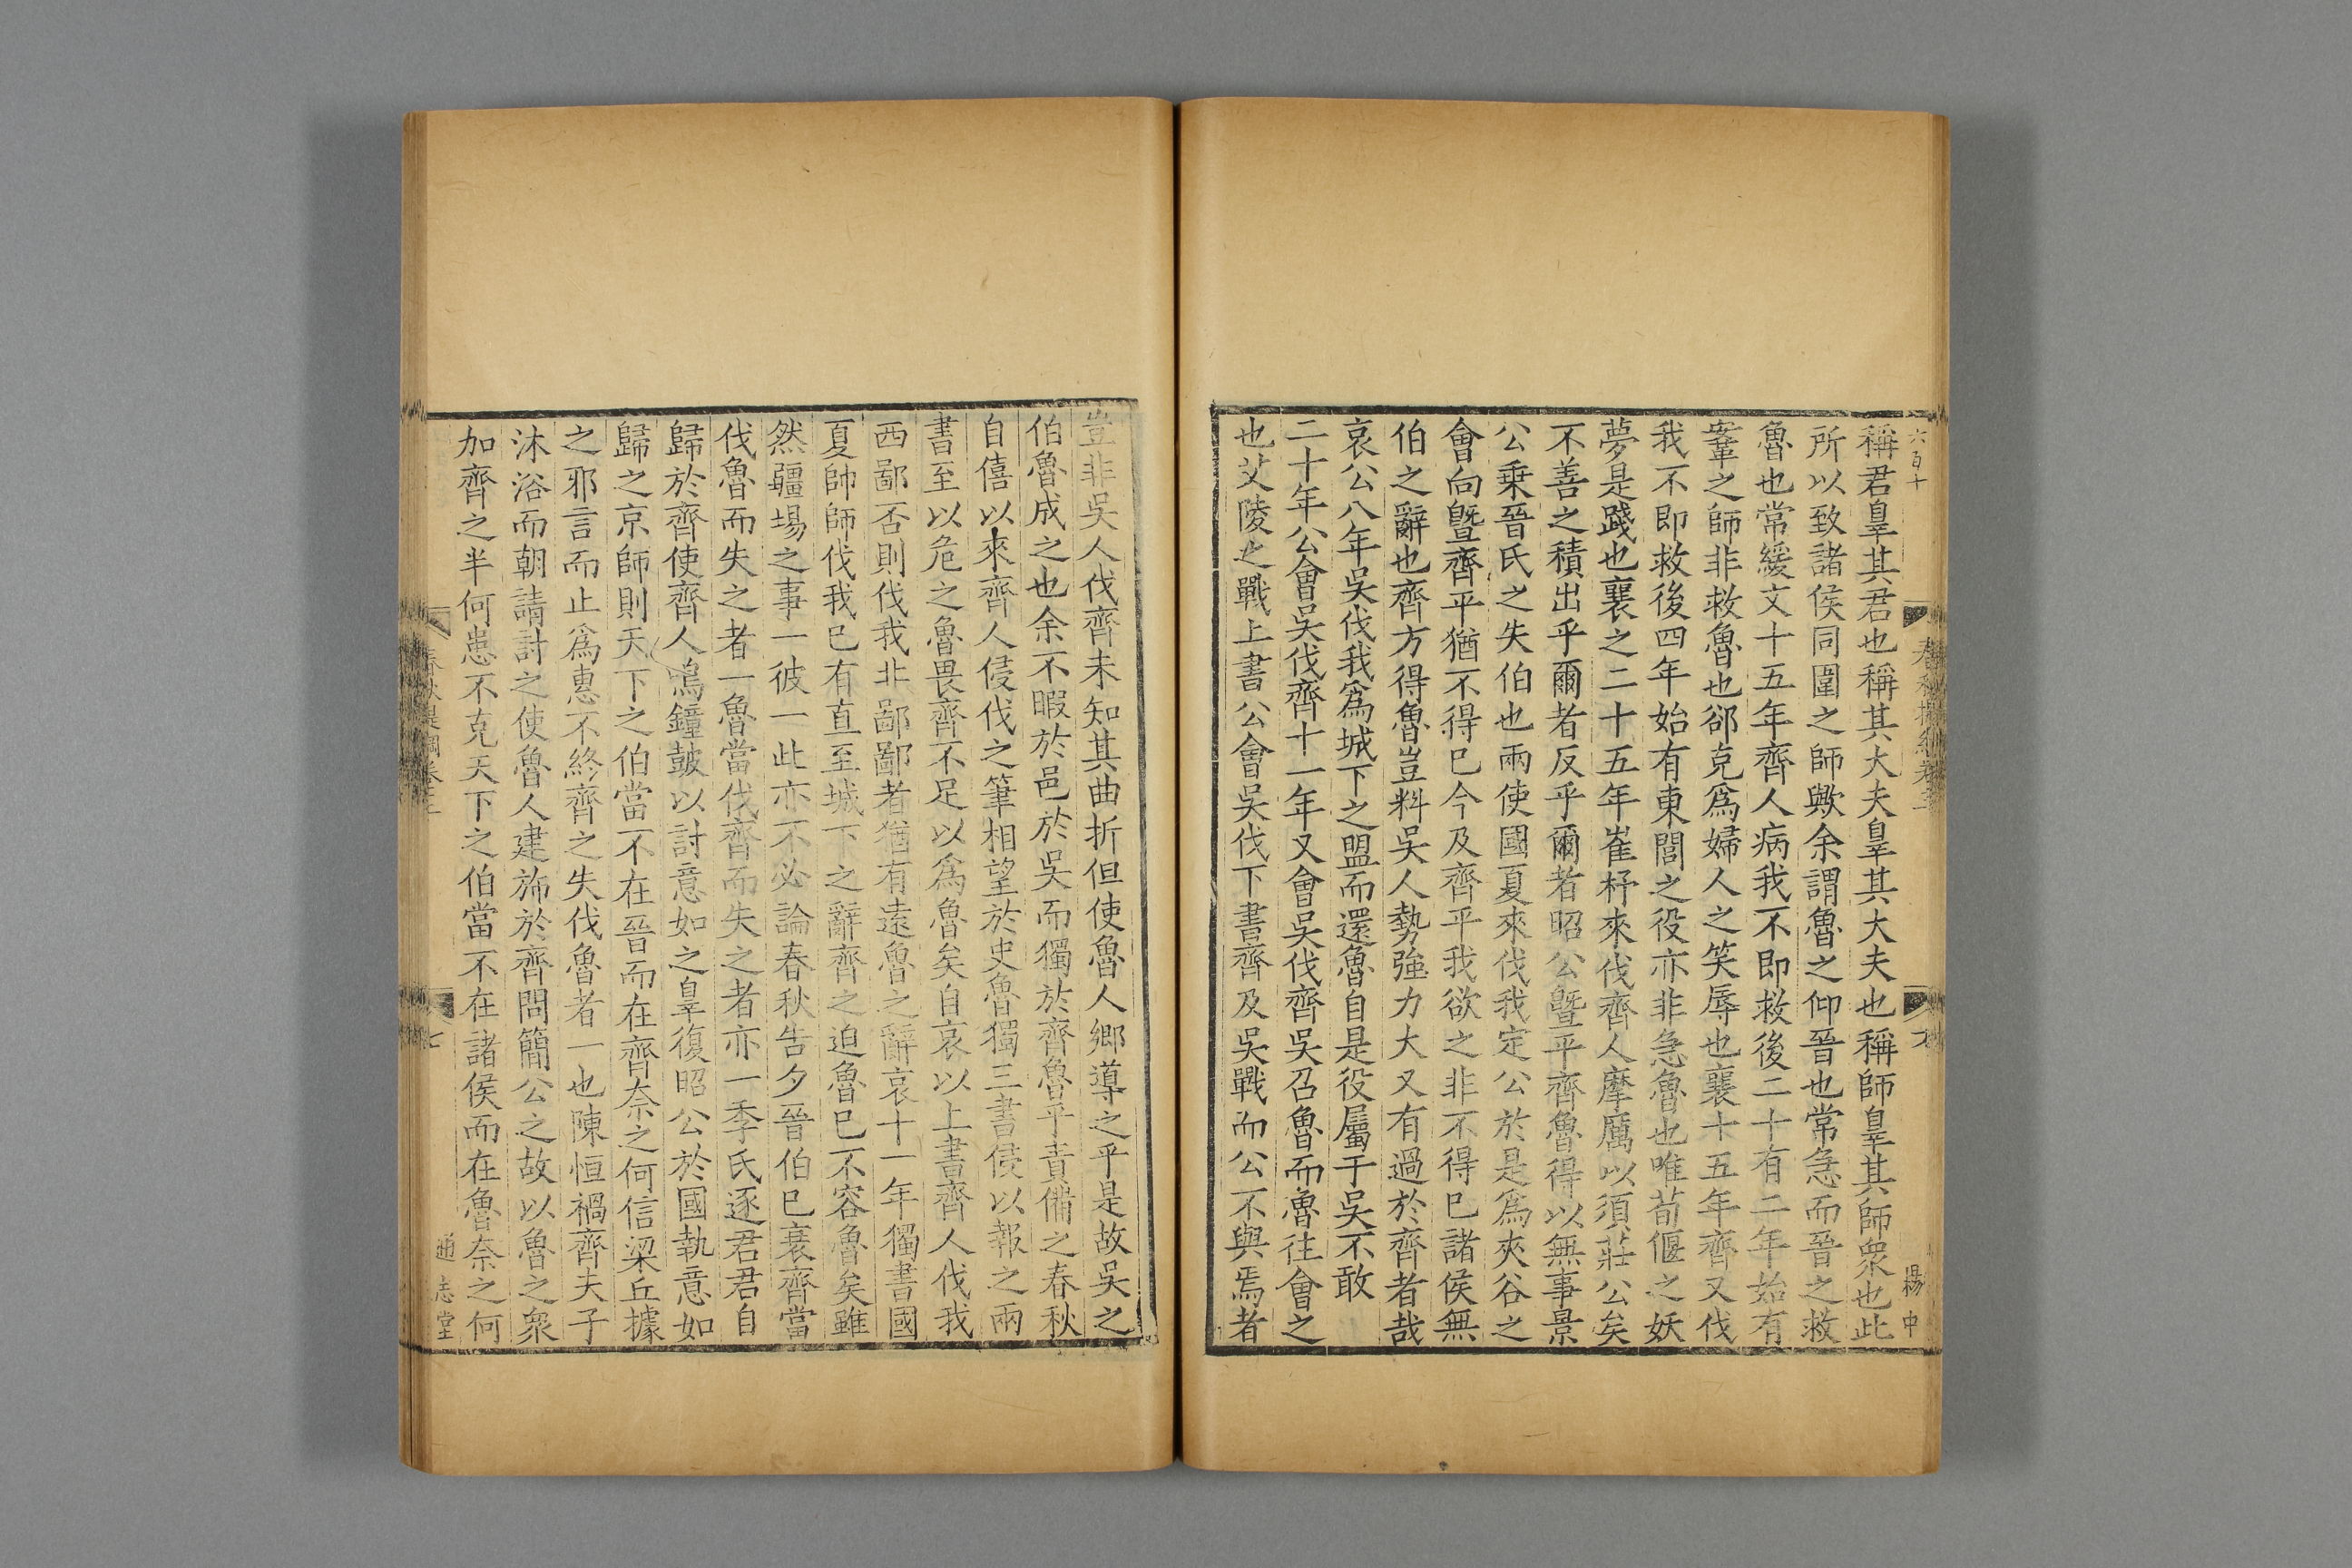 六百十
春秋提綱卷三
楊中
稱君皐其君也稱其大夫皐其大夫也稱師皐其師衆也此
所以致諸侯同圍之師歟余謂魯之仰晉也常急而晉之救
魯也常緩文十五年齊人病我不即救後二十有二年始有
鞌之師非救魯也郤克爲婦人之笑辱也襄十五年齊又伐
我不即救後四年始有東閭之役亦非急魯也唯荀偃之妖
夢是踐也襄之二十五年崔杼來伐齊人摩厲以須莊公矣
不善之積出乎爾者反乎爾者昭公曁平齊魯得以無事景
公乗晉氏之失伯也兩使國夏來伐我定公於是爲夾谷之
會向曁齊平猶不得已今及齊平我欲之非不得已諸侯無
伯之辭也齊方得魯豈料吳人勢強力大又有過於齊者哉
哀公八年吳伐我爲城下之盟而還魯自是役屬于吳不敢
二十年公會吳伐齊十一年又會吳伐齊吳召魯而魯往會之
也艾陵之戰上書公會吳伐下書齊及吳戰而公不與焉者
豈非吳人伐齊未知其曲折但使魯人鄉導之乎是故吳之
伯魯成之也余不暇於邑於吳而獨於齊魯平責備之春秋
自僖以來齊人侵伐之筆相望於史魯獨三書侵以報之兩
書至以危之魯畏齊不足以爲魯矣自哀以上書齊人伐我
西鄙否則伐我非鄙鄙者猶有遠魯之辭哀十一年獨書國
夏帥師伐我已有直至城下之辭齊之迫魯已不容魯矣雖
然疆埸之事一彼一此亦不必論春秋告夕晉伯已衰齊當
伐魯而失之者一魯當伐齊而失之者亦一季氏逐君君自
歸於齊使齊人鳴鐘鼓以討意如之皐復昭公於國執意如
歸之京師則天下之伯當不在晉而在齊奈之何信梁丘據
之邪言而止爲惠不終齊之失伐魯者一也陳恒禍齊夫子
沐浴而朝請討之使魯人建斾於齊問簡公之故以魯之衆
加齊之半何患不克天下之伯當不在諸侯而在魯奈之何
春秋提綱卷三
七
通志堂